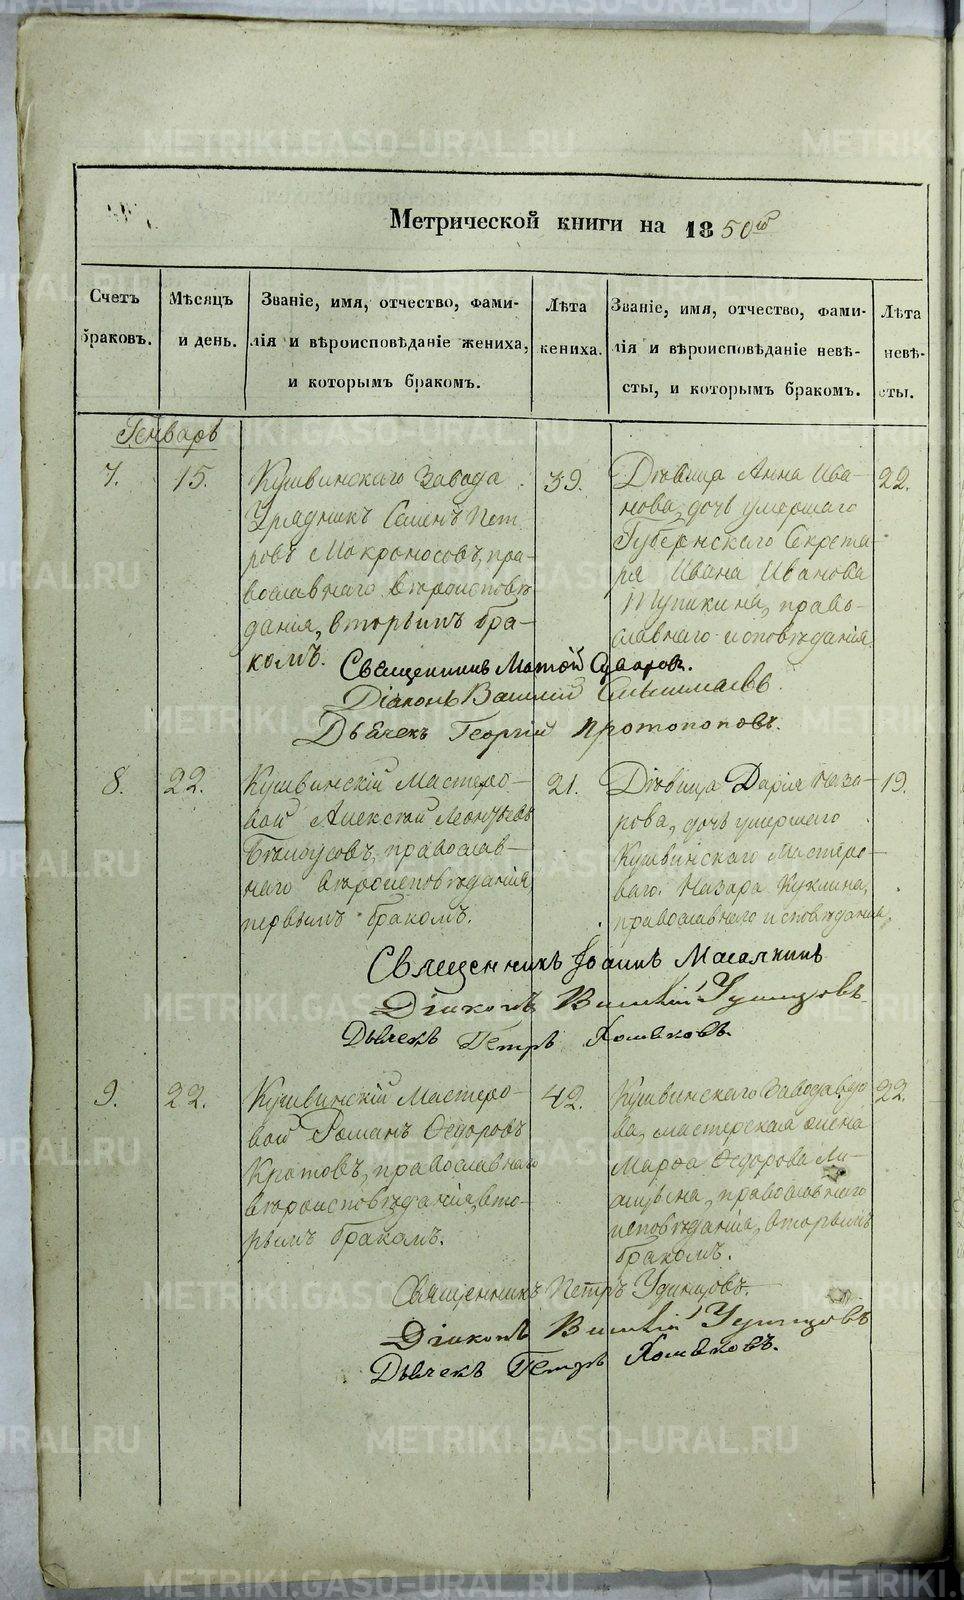 Метрической книги на 1850го
Счетъ браковъ.
Мѣсяцъ и день.
Званіе, имя, отчество, фамилія и вѣроисповѣданіе жениха, и которымъ бракомъ.
Лѣта жениха.
Званіе, имя, отчество, фамилія и вѣроисповѣданіе невѣсты, и которымъ бракомъ.
Лѣта невѣсты.
Генварь
7.
15.
Кушвинскаго Завода
Урядникъ Семенъ Пет
ровъ Мокроносовъ, пра-
вославнаго вѣроисповѣ
данія, вторымъ бра-
комъ.
39.
Дѣвица Анна Ива-
нова, дочь умершаго
Губернскаго Секрета-
ря Ивана Иванова
Тупикина, право-
славнаго исповѣданія
22.
Священникъ
Діаконъ Василій
Дьячекъ Георгій Протопоповъ.
8.
22.
Кушвинскій Мастеро-
вой Алексѣй Леонтьевъ
Бѣлоусовъ, православ-
наго вѣроисповѣданія,
первымъ бракомъ.
21.
Дѣвица Дарія Наза-
рова, дочь умершаго
Кушвинскаго Мастеро-
ваго Назара Куклина,
православнаго исповѣданія,
19.
Священникъ Іоаннъ
Діаконъ Василій Удинцовъ
Дьячекъ Петръ Хомяковъ.
9.
22.
Кушвинскій Мастеро-
вой Романъ Ѳедоровъ
Кротовъ, православнаго
вѣроисповѣданія, вто-
рымъ бракомъ.
42.
Кушвинскаго Завода вдо
ва, мастерская жена
Марѳа Ѳедорова
православнаго
исповѣданія, вторымъ
бракомъ.
22.
Священникъ Петръ Удинцовъ.
Діаконъ Василій Удинцовъ
Дьячекъ Петръ Хомяковъ.
METRIKI.GASO-URAL.RU